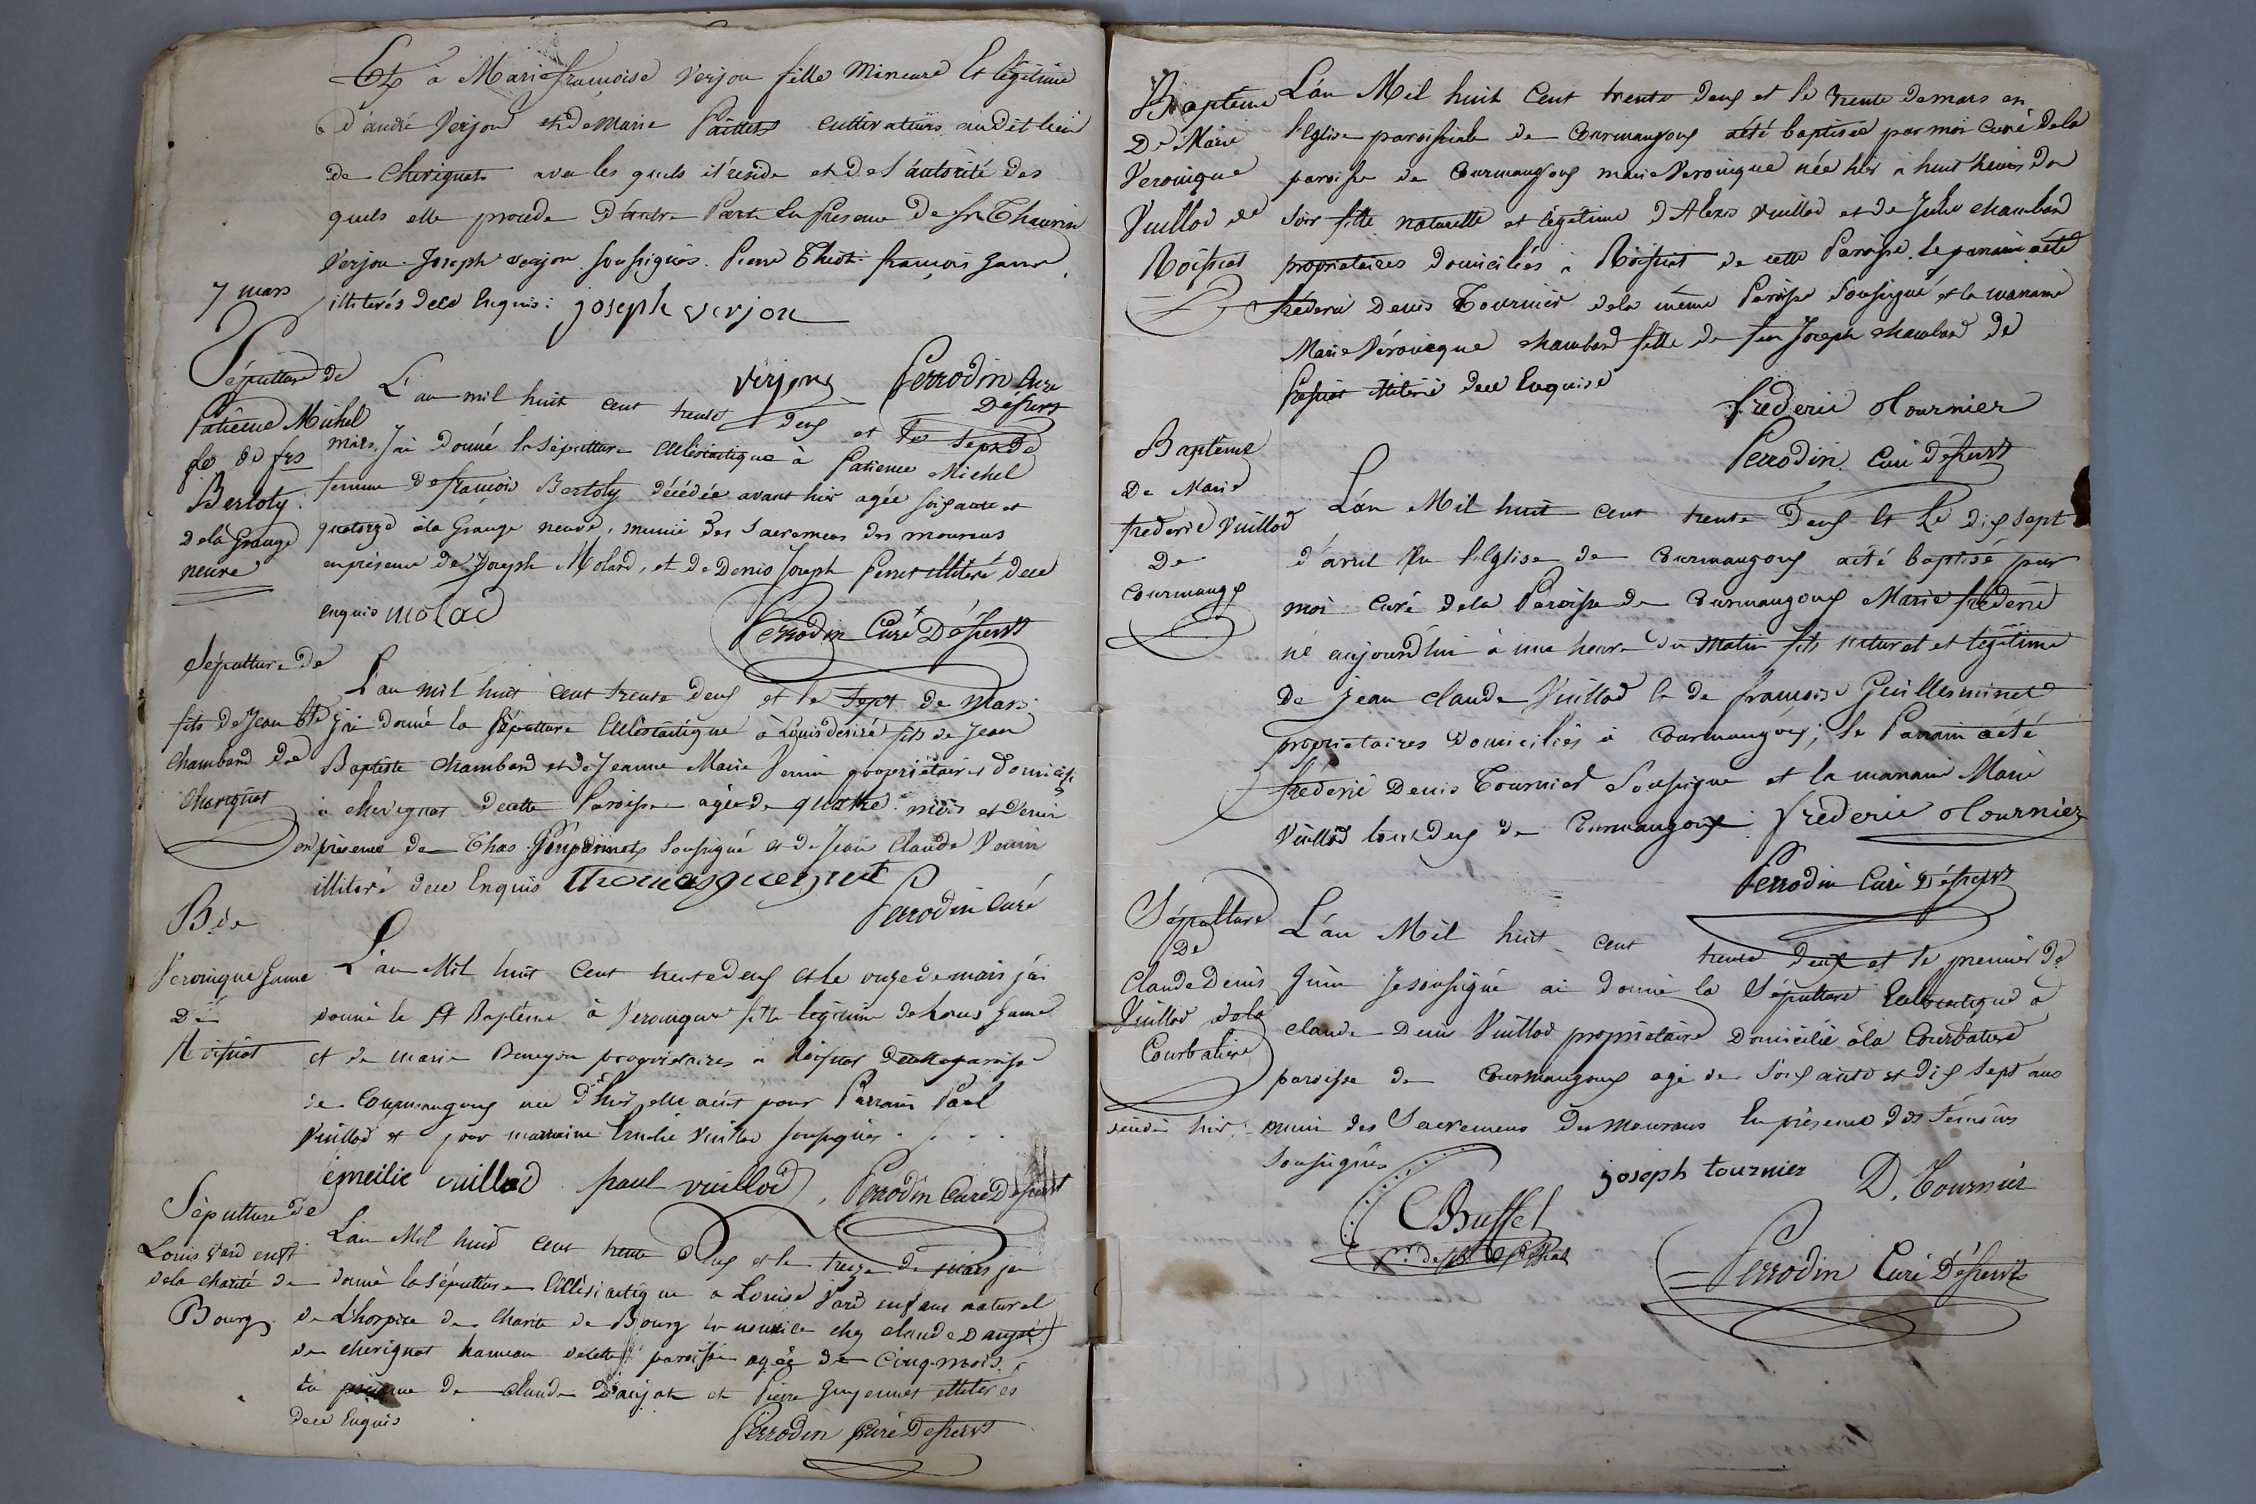 Et à Marie françoise Verjon fille Mineure Et légitime
d'andré Verjon et de Marie Paillet cultivateurs audit lieu
de Cherignat avec les quels il réside et de l'autorité des
quels elle procede D'autre Part En présence De
Verjon. Joseph verjon soussignés. Pierre françois Game
illiterés dece Enquis: joseph verjon
7 mars
verjon Perrodin Curé
Déservt
Sépulture de
Patience Michel
fe de fçs
Bertoly
De la Grange
neuve
L'an mil huit cent trente deux et le sept de
mars. J'ai donné la sépulture eclésiastique à Patience Michel
femme de françois Bertoly décédée avant hier agée soixante et
quatorze à la Grange neuve, munie des Sacremens des mourans
en présence de Joseph Molard, et de Denis Joseph Perret illiteré dece
enquis molad
Perrodin Curé Déservt
Sépulture de
fils de Jean Bte
Chambard de
Cherignat
L'an mil huit cent trente deux et le sept de Mars
j'ai donné la sépulture Eclésiastique à Louis desiré fils de Jean
Baptiste Chambard et de Jeanne Marie Venin propriétaires domiciliés
à cherignat de cette Paroisse agé de quatre mois et demi
en présence de Thos soussigné et de Jean Claude Venin
illiteré dece Enquis
Perrodin curé
B. de
Veronique Game
De
Roissiat
L'an Mil huit Cent trente deux et le onze de mars j'ai
donné le St Baptême à Veronique fille légitime de Game
et de marie propriétaires à Roissiat de cette paroisse
de Courmangoux née d'hier, elle a eut pour Parrain Paul
Vuillod et pour marraine Emilie Vuillod soussignés.
émeilie vuillod paul vuillod, Perrodin Curé Déservt
Sépulture de
Louis Vard enft
de la charité de
Bourg
L'an Mil huit cent trente Deux et le treize de mars j'ai
donné la sépulture Eclésiastique a Louise Vard enfant naturel
de L'hospice de Charité de Bourg en nourrice chez claude Danjat
de cherignat hameau de cette paroisse agée de Cinq mois,
En présence de claude Danjat et Pierre Guyennet illiterés
dece Enquis
Perrodin curé Deservt
Baptême
De Marie
Veronique
Vuillod de
Roissiat
L'an Mil huit Cent trente deux et le trente de mars en
l'Eglise paroissiale de Courmangoux a été baptisée par moi curé de la
paroisse de Courmangoux marie Veronique née hier à huit heures du
soir fille naturelle et légitime d'Alexis Vuillod et de Julie chambard
propriétaires domiciliés à Roissiat de cette Paroisse. le parrain a été
fréderic Denis Tournier de la même Paroisse Soussigné et la maraine
Marie Véronique chambard fille de feu Joseph chambard de
Roissiat illiterée dece Enquise
frederic tournier
Perrodin. Curé déservt
Baptême
De Marie
frederic Vuillod
De
Courmangx
L'an Mil huit cent trente Deux et Le dix sept
d'avril En l'Eglise de Courmangoux a été baptisé par
moi curé de la Paroisse de Courmangoux Marie frederic
né aujourd'hui à une heure du Matin fils naturel et légitime
De Jean claude Vuillod et de françoise Guillerminet
propriétaires domiciliés à Courmangoux; le Parrain a été
fréderic Denis Tournier Soussigné et la maraine Marie
Vuillod tout deux de Courmangoux. frederic tournier
Perrodin Curé Déservt
Sépulture
De
Claude Denis
Vuillod de la
Courbatiere
L'an Mil huit cent trente deux et le premier de
Juin Je soussigné ai donné la Sépulture Eclésiastique à
claude Denis Vuillod propriétaire Domicilié à la Courbatiere
paroisse de Courmangoux agé de Soixante et dix sept ans
décédé hier. muni des Sacremens des Mourans En présence des témoins
soussignés
joseph tournier D. Tournier
CBuffet
Perrodin Curé Déservt